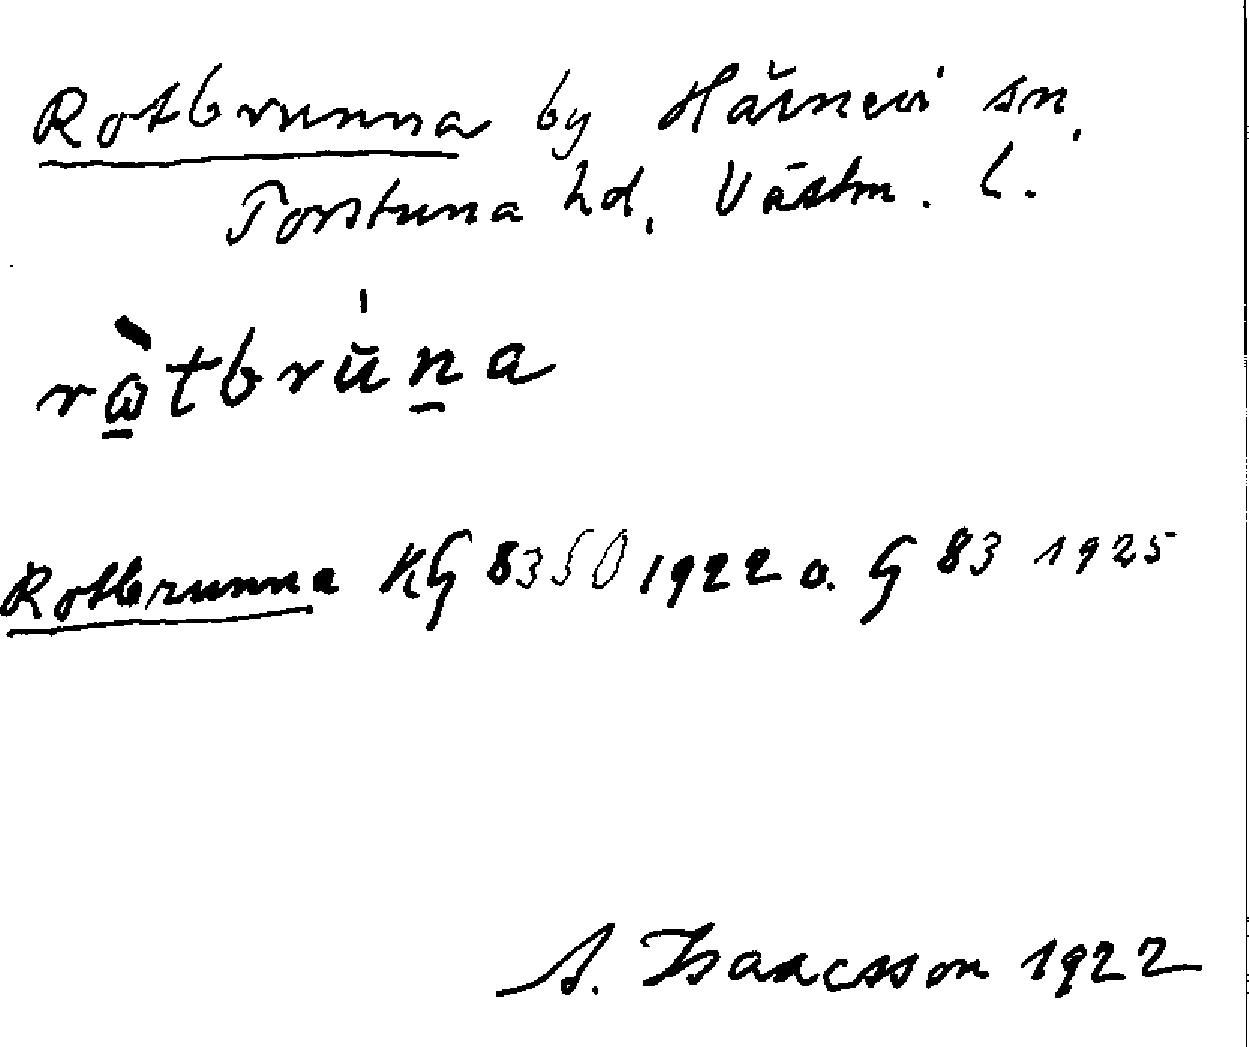 Rotbrunna by Härnevi sn,
Torstuna hd, Västm. l.
rὼ̱tbrŭ́ṉa
Rotbrunna KG 8350 1922 o. G 83 1925
A. Isaacsson 1922